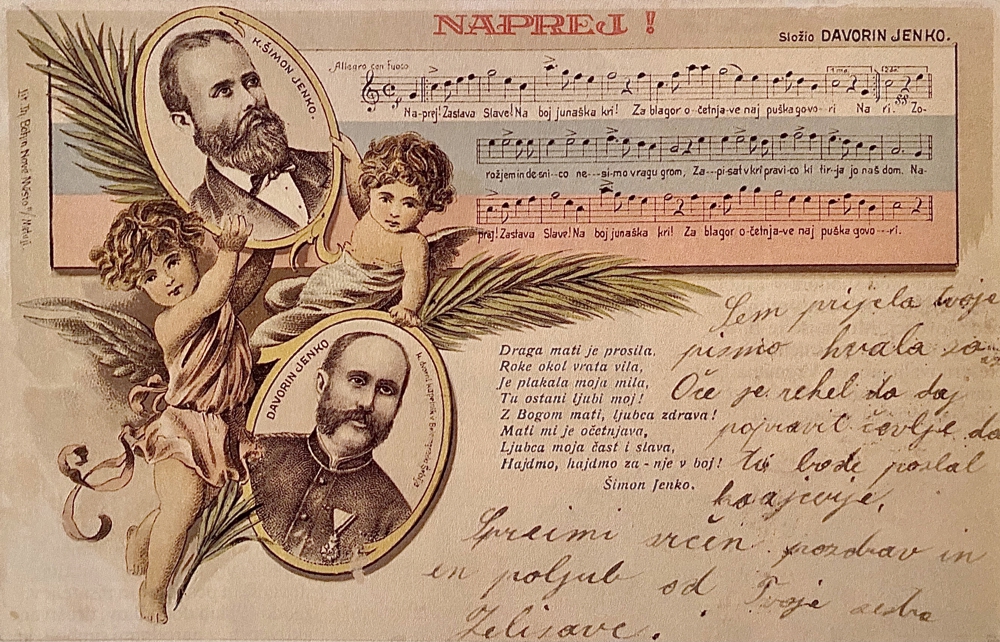 NAPREJ !
Složio DAVORIN JENKO.
K. ŠIMON JENKO.
Allegro con fuoco
Na-prej! Zastava Slave! Na boj junaška kri! Za blagor o-četnja-ve naj puška govo--ri Na ri. Zo-
rožjem in desni--co ne---si-mo vragu grom, Za---pi-sat v kri pravi-co ki tir-ja jo naš dom. Na-
prej! Zastava Slave! Na boj junaška kri! Za blagor o-četnja-ve naj puška govo---ri.
DAVORIN JENKO
Draga mati je prosila.
Roke okol vrata vila,
Je plakala moja mila,
Tu ostani ljubi moj!
Z Bogom mati, ljubca zdrava!
Mati mi je očetnjava,
Ljubca moja čast i slava,
Hajdmo, hajdmo za-nje v boj!
Šimon Jenko.
Sem prijela tvoje
pismo hvala za
Oče je rekel da daj
popravit čevlje da
ti bode poslal
Sprejmi srčen pozdrav in
en poljub od Tvoje sestre